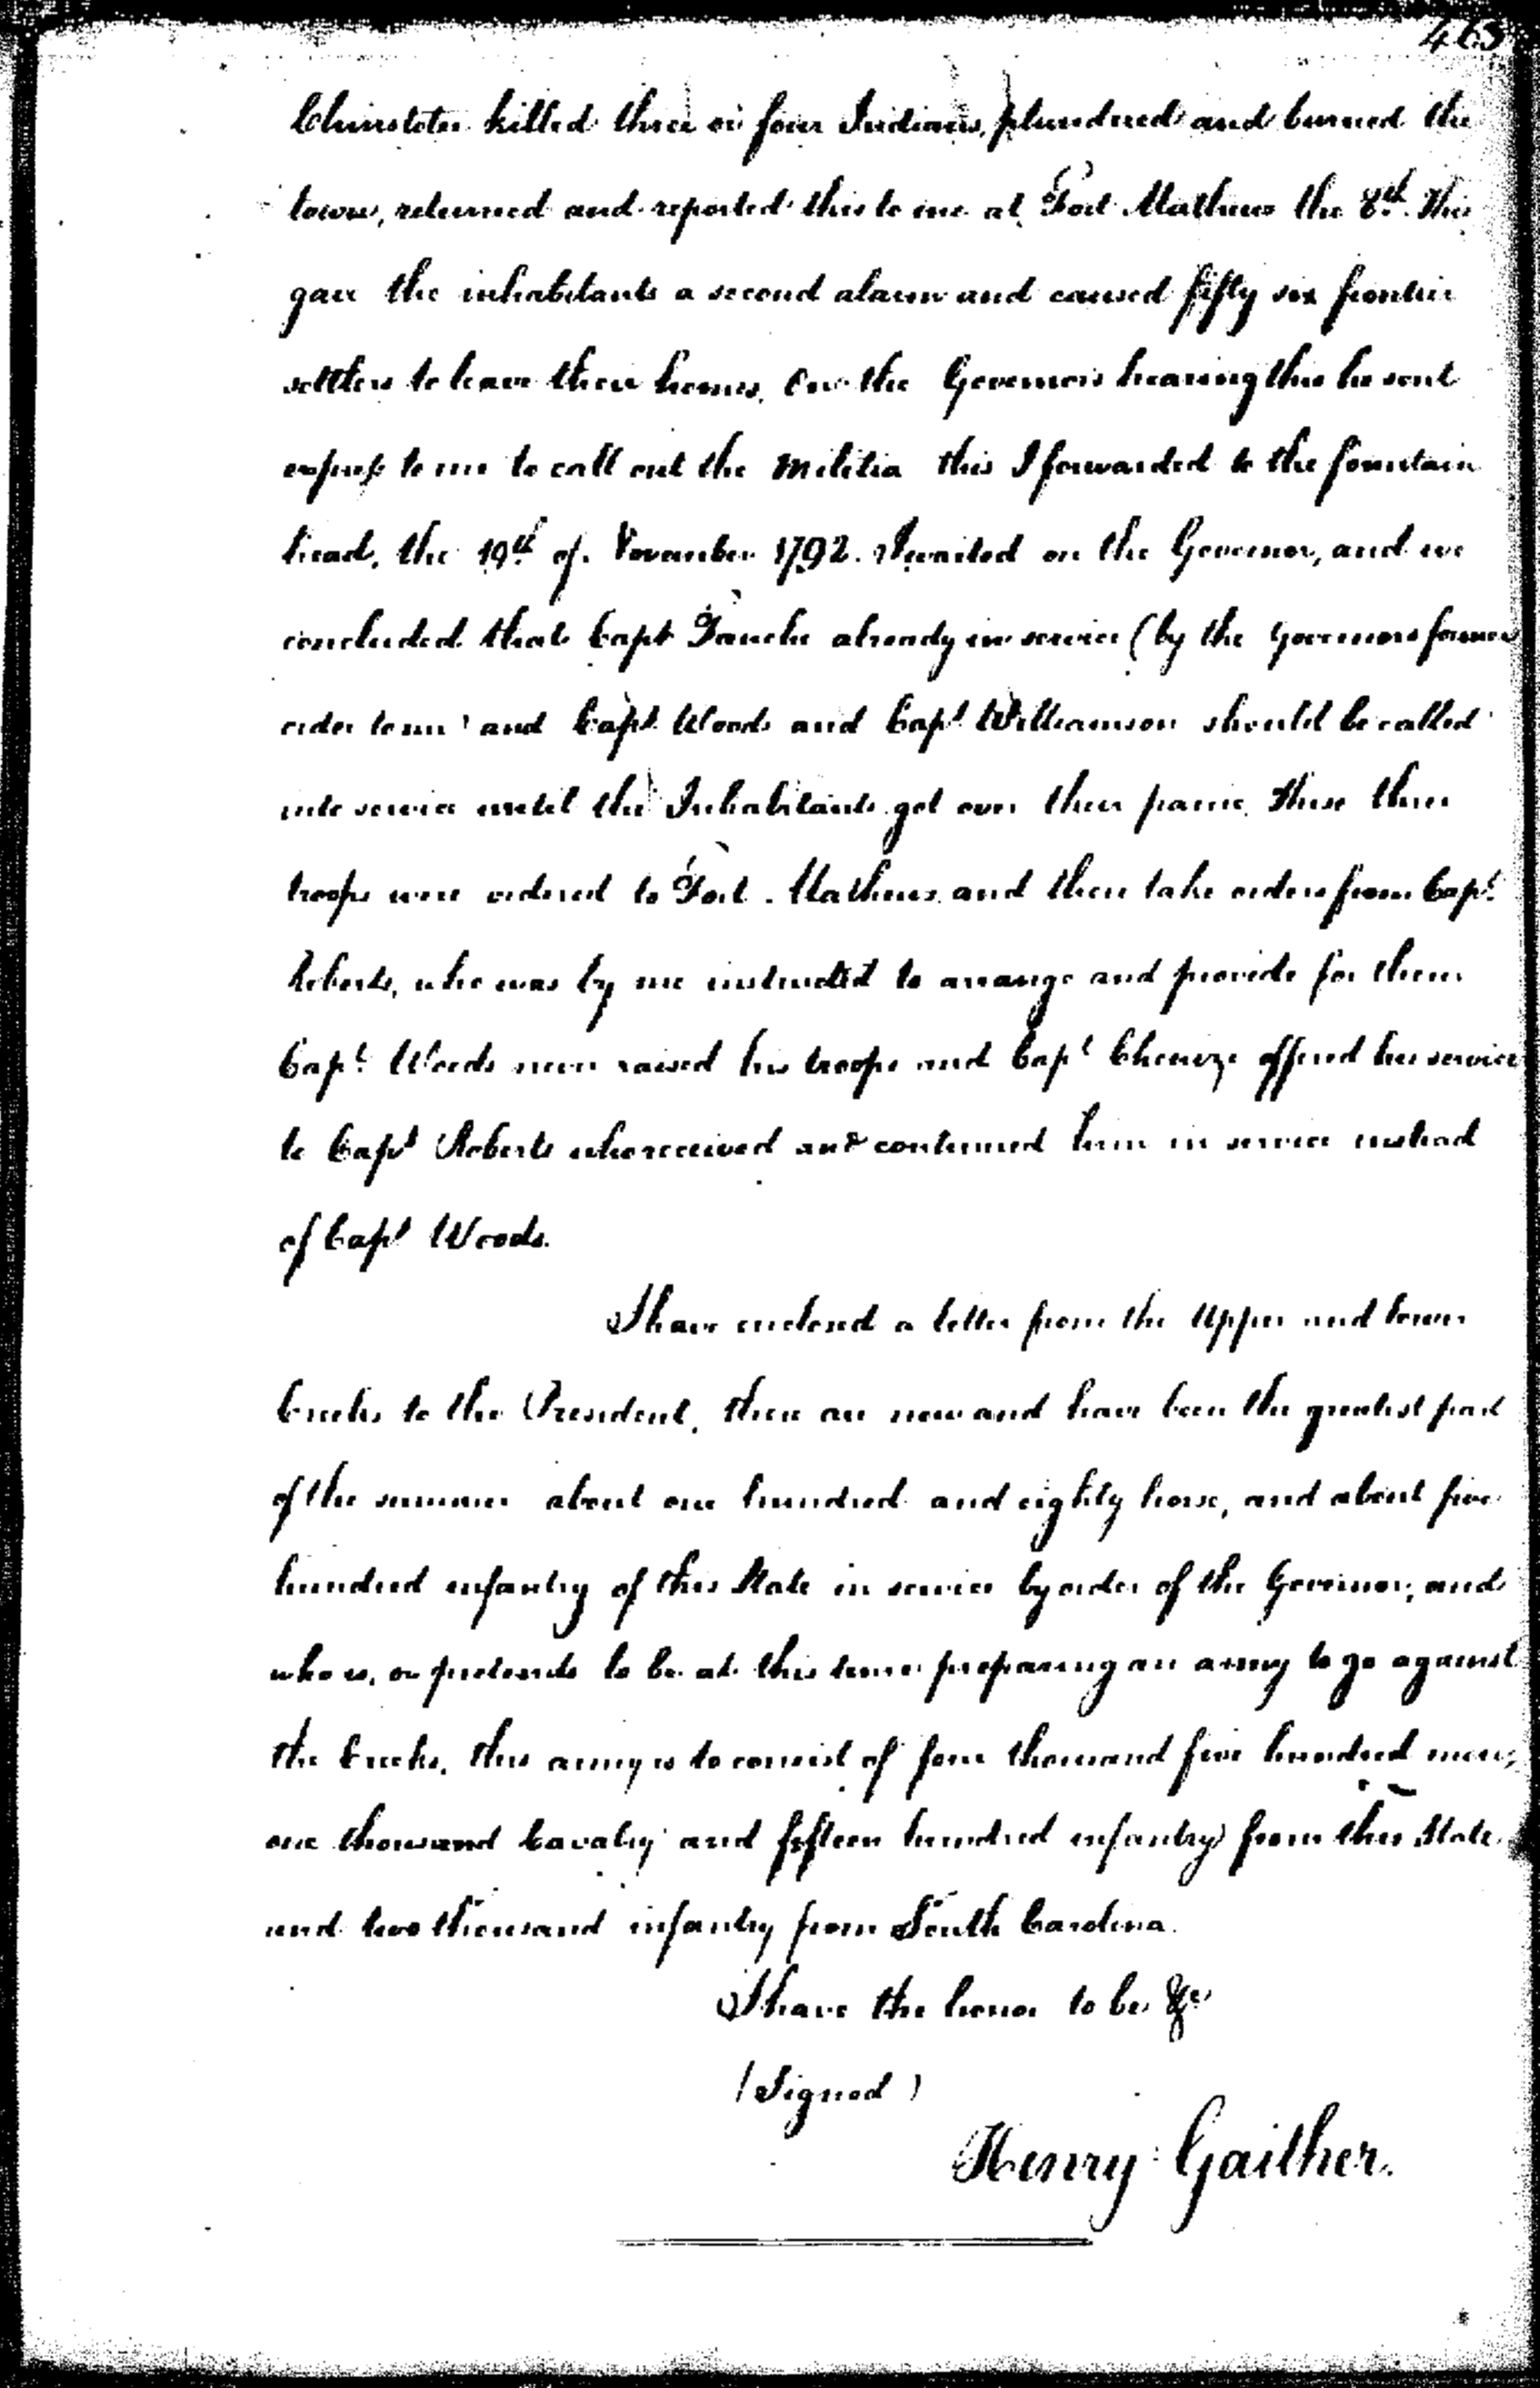 463
killed three or four Indians, plundered and burned the
town, returned and reported this to me at Fort Mathews the 8th. This
gave the inhabitants a second alarm and caused fifty six frontier
settlers to leave their homes. On the Governors hearing this he sent
express to me to call out the Militia this I forwarded to the fountain
head, the 19th of November 1792. I waited on the Governor, and we
concluded that Capt Fauche already in service (by the Governors former
order to me) and Capt. Woods and Capt. Williamson should be called
into service until the Inhabitants got over their panic. These three
troops were ordered to Fort Mathews and there take orders from Capt.
Roberts, who was by me instructed to arrange and provide for them
Capt. Woods never raised his troops and Capt offered his service
to Capt Roberts who received and continued him in service instead
of Capt Woods.
I have enclosed a letter from the Upper and lower
Creeks to the President, there are now and have been the greatest part
of the summer about one hundred and eighty horse, and about five
hundred infantry of this State in service by order of the Governor; and
who is, or pretends to be at this time preparing an army to go against
the Creeks. this army is to consist of four thousand five hundred men;
one thousand Cavalry and fifteen hundred infantry from this State,
and two thousand infantry from South Carolina.
I have the honor to be &c
(Signed)
Henry Gaither.